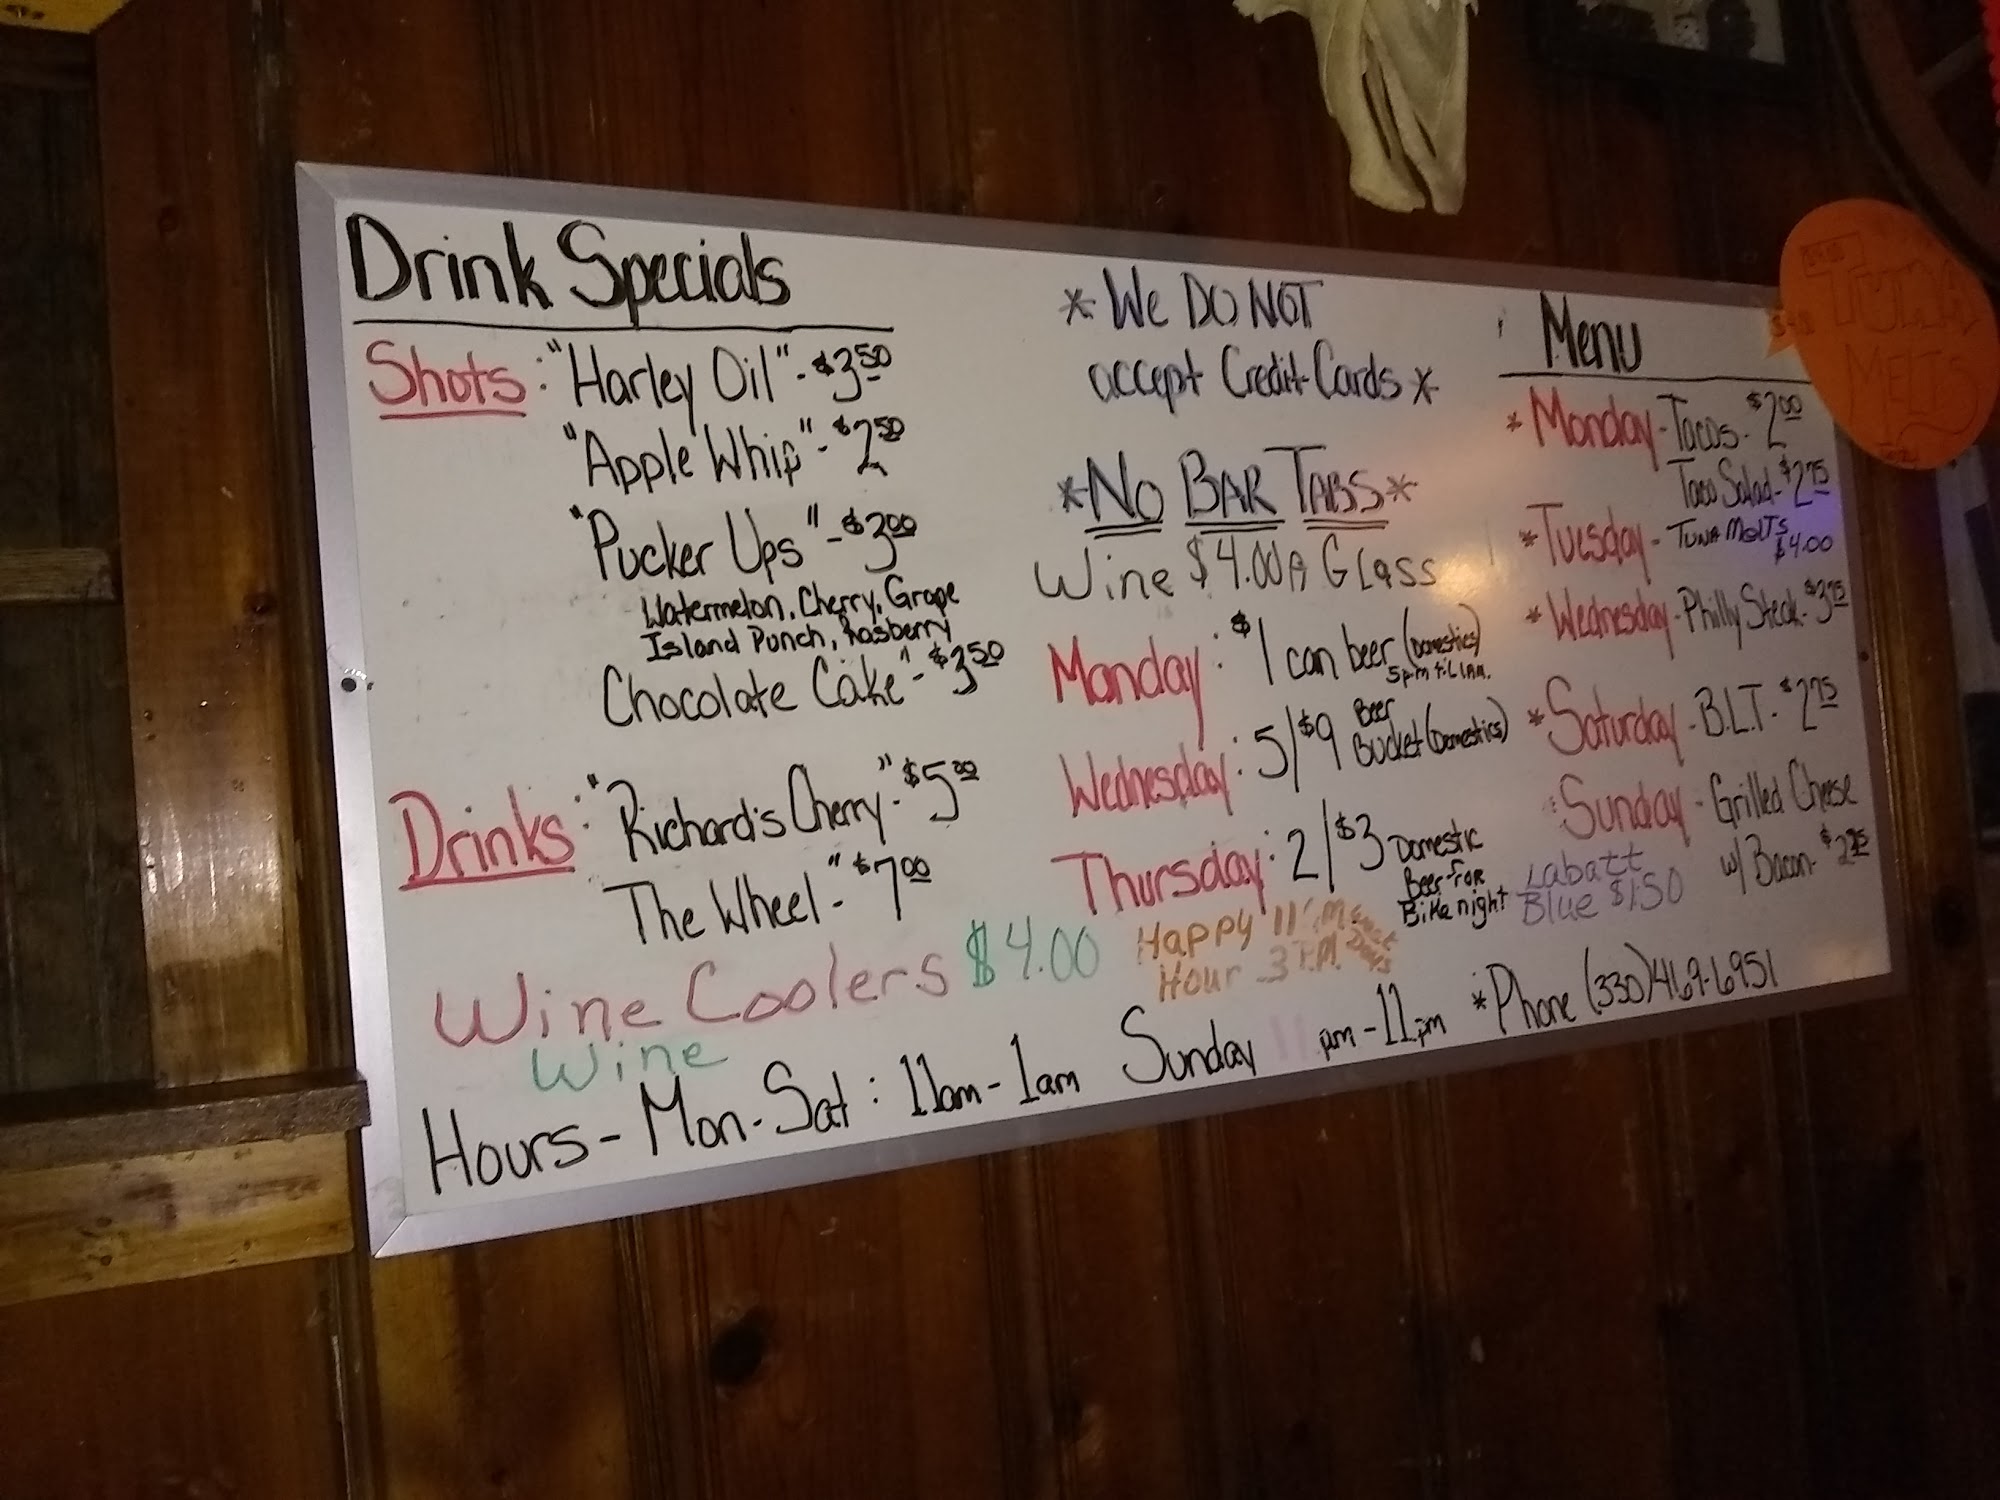 Drink Specials
Shots: "Harley Oil" - $3.50
"Apple Whip" - $2.50
"Pucker Ups" - $3.00
Watermelon, Cherry, Grape
Island Punch, Rasberry
Chocolate Cake" - $3.50
Drinks: "Richard's Cherry" - $5.00
The Wheel" - $7.00
Wine Coolers $4.00
Wine
* We DO NOT
accept Credit Cards *
*No BAR TABS*
Wine $4.00 A Glass
Monday: $1 can beer (Domestics)
5pm til 1AM.
Wednesday: 5/$9 Beer
Bucket (Domestics)
Thursday: 2/$3 Domestic
Beer for
Bike night
Happy 11
Hour - 3 P.M.
Menu
* Monday - Tacos - $2.00
Taco Salad - $2.75
* Tuesday - TUNA MeLTS
$4.00
* Wednesday - Philly Steak - $3.75
* Saturday - B.L.T. - $2.75
Sunday - Grilled Cheese
w/ Bacon - $2.25
Labatt
Blue $1.50
Hours - Mon - Sat: 11am - 1am Sunday 11 pm - 11pm *Phone (330)469-6951
TUNA
MELTS